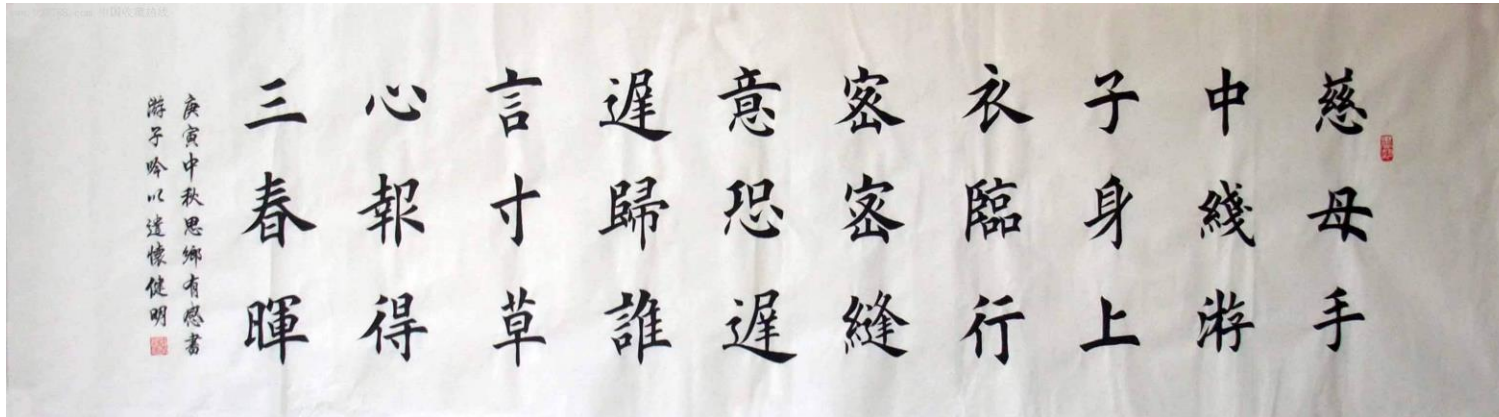 慈母手
中綫游
子身上
衣臨行
密密縫
意恐遲
遲歸誰
言寸草
心報得
三春暉
庚寅中秋思鄉有感書
游子吟以遣懷健明